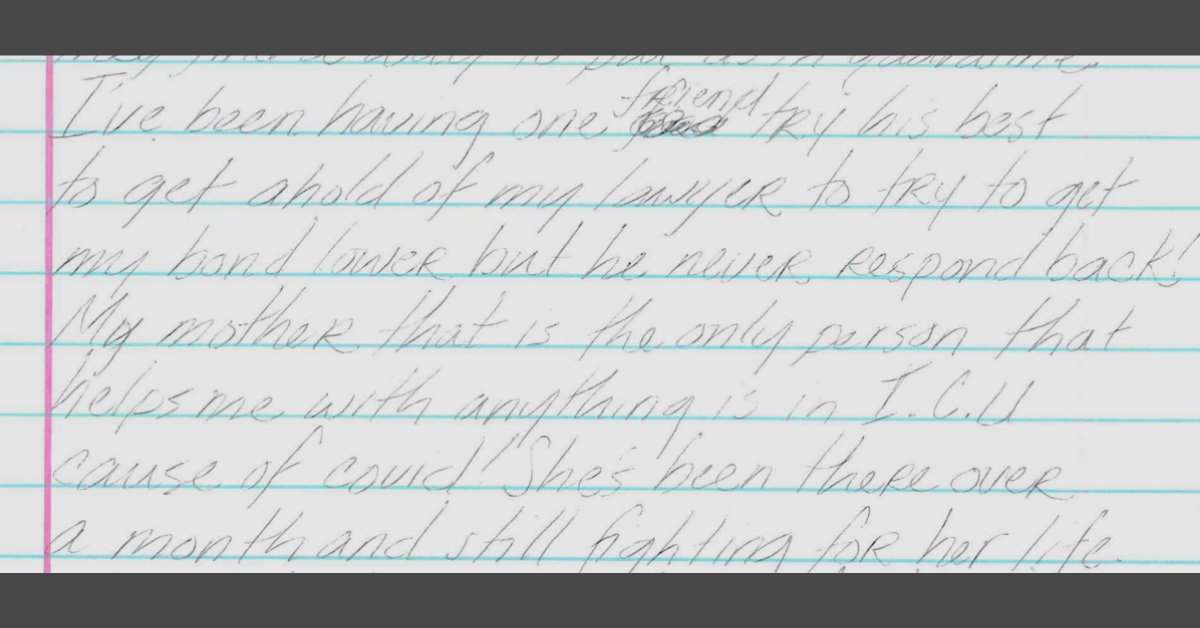 to put us in quarantine.
I've been having one friend try his best
to get ahold of my lawyer to try to get
my bond lower but he never respond back!
My mother that is the only person that
helps me with anything is in I.C.U
cause of covid! She's been there over
a month and still fighting for her life.